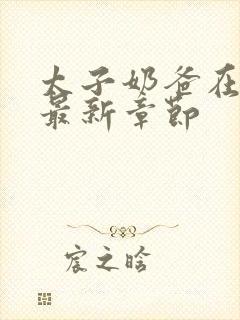 太子奶爸在
最新章节
宸之晗